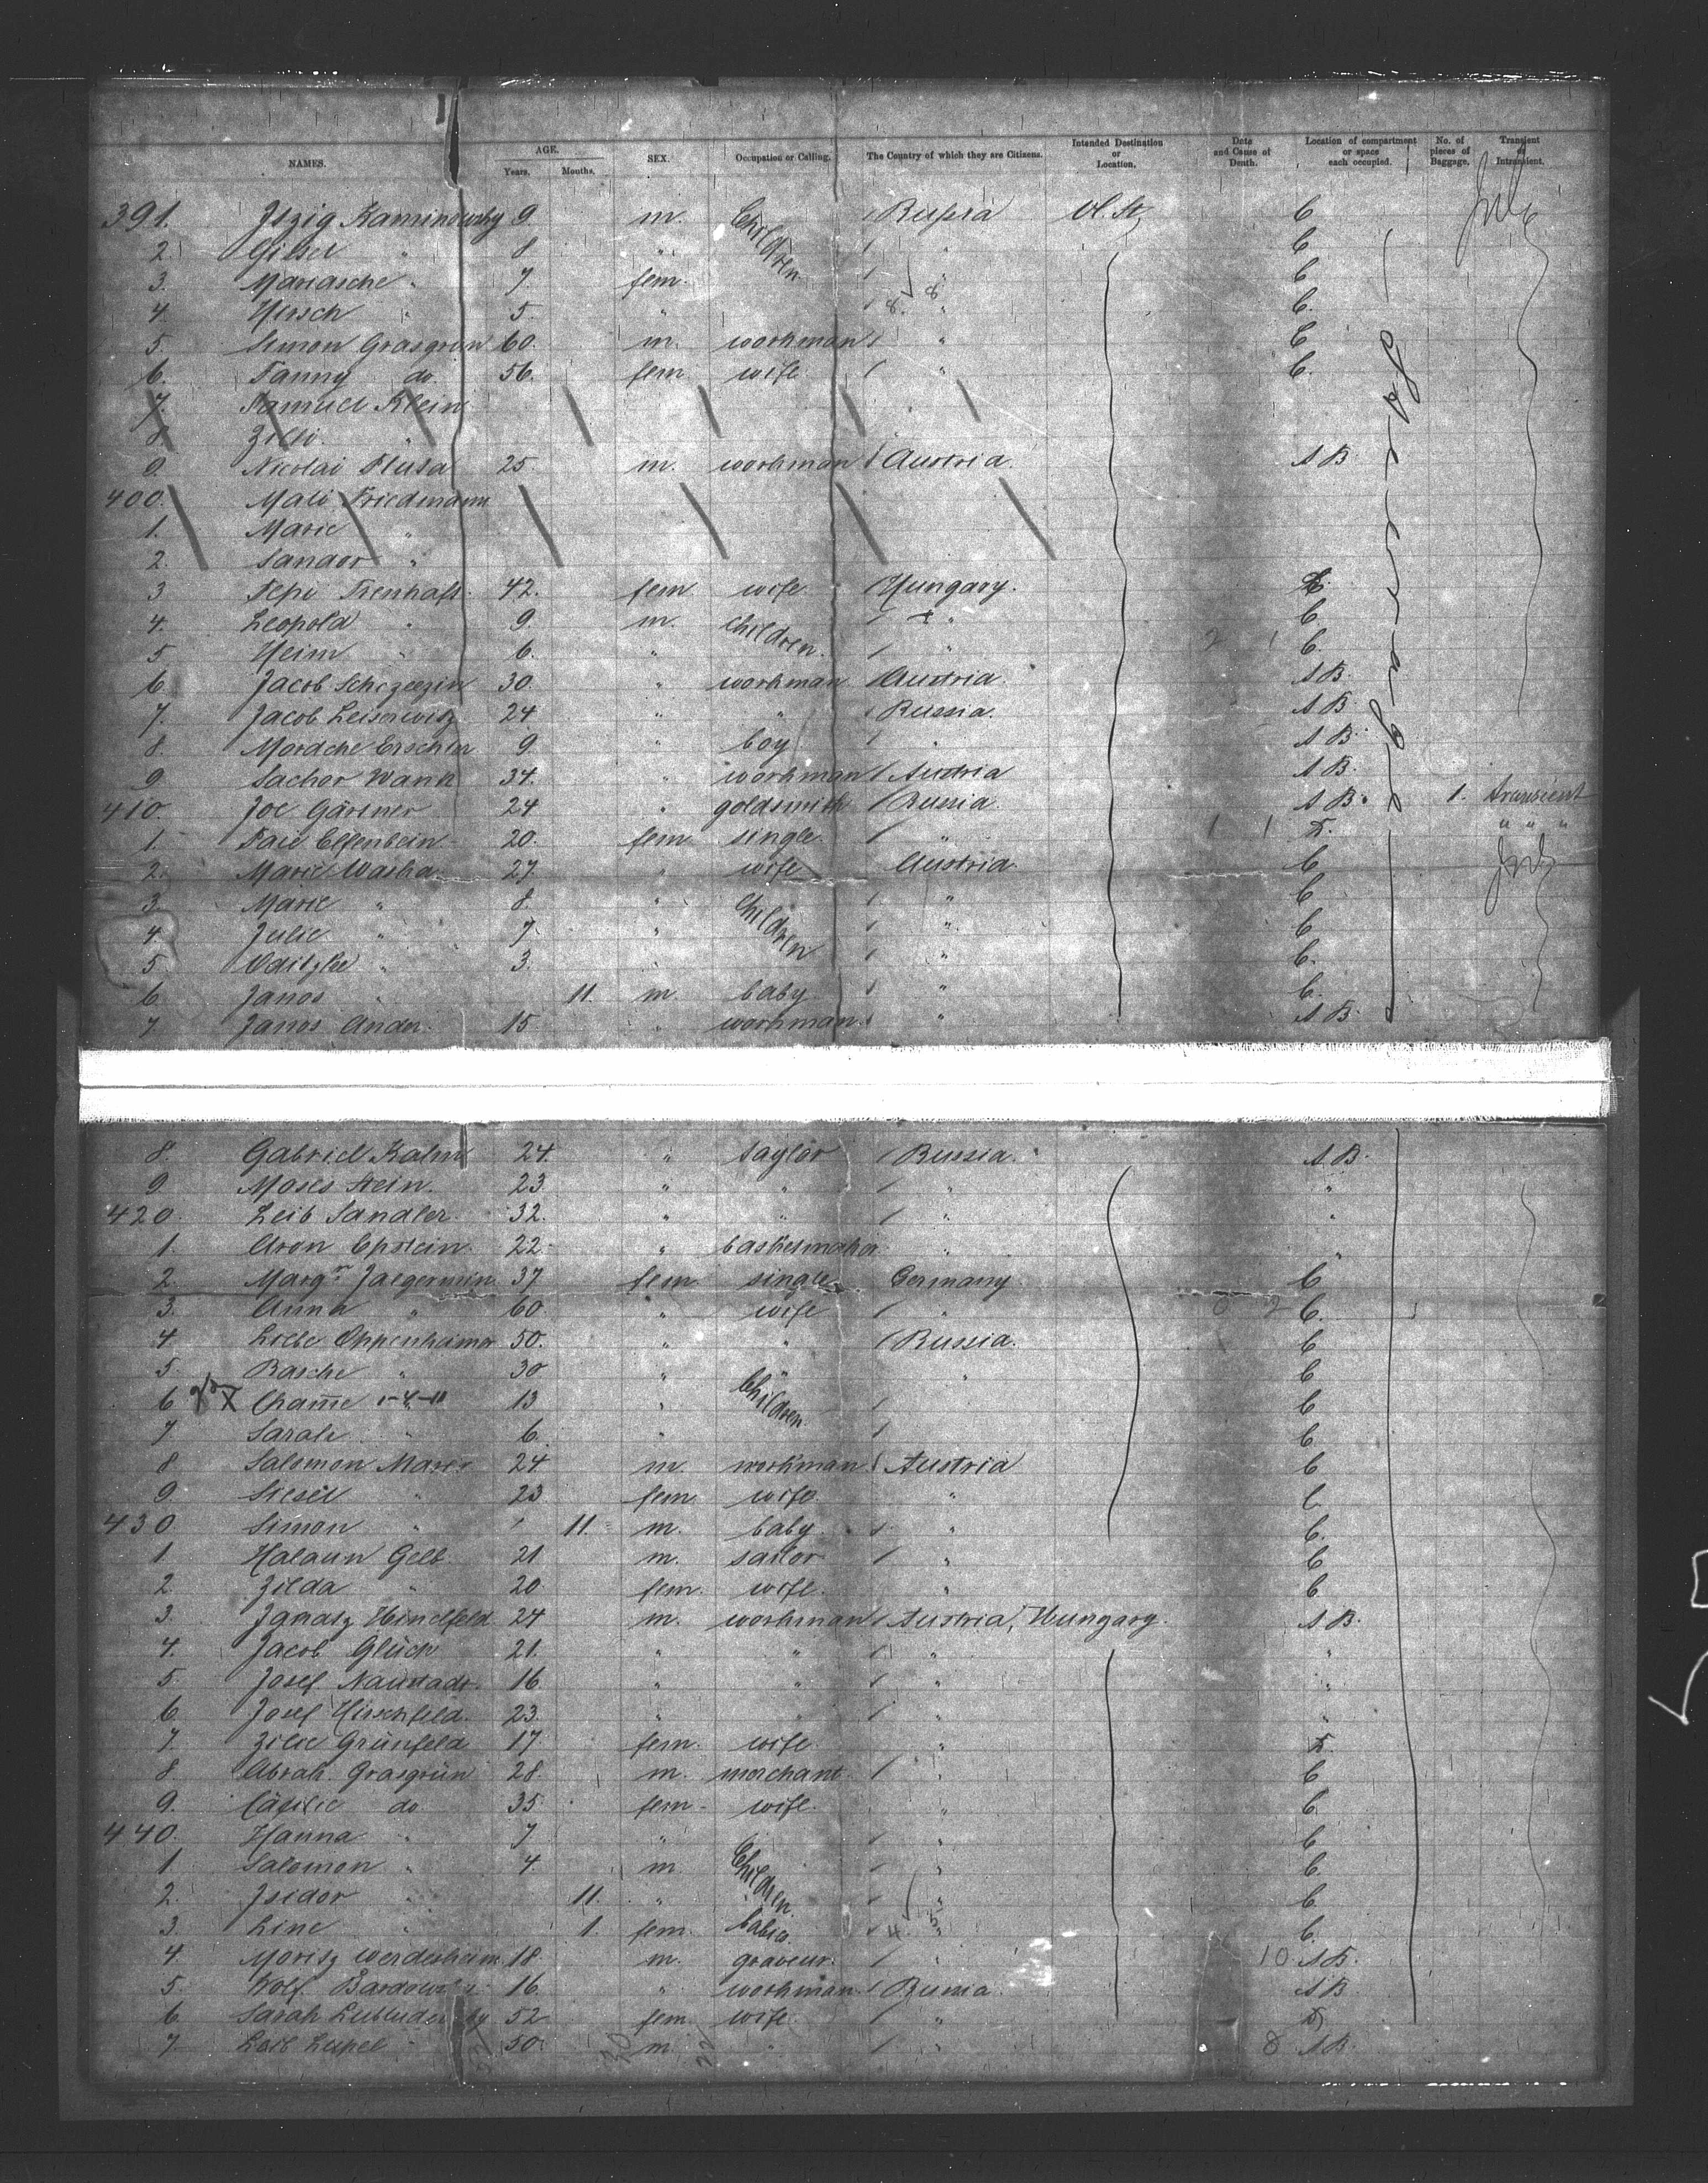 NAMES. AGE. Years. Months. SEX. Occupation or Calling. The Country of which they are Citizens. Intended Destination or Location. Date and Cause of Death. Location of compartment or space each occupied. No. of pieces of Baggage. Transient or Intransient.
391. Iszig Kaminowsky 9. m. Children Russia U. St. C
2. Gissel " 8 " " C
3. Mariasche " 7. fem. " C
4. Hirsch " 5. " 8. 8 " C.
5. Simon Grasgrün 60. m. workman " C
6. Fanny do. 56. fem wife " C.
7. Samuel Klein
8 Zilli "
9. Nicolai Husa 25. m. workman Austria. A B
400. Mali Friedmann
1. Marie "
2. Sandor "
3 Pepi 42. fem wife Hungary.
4. Leopold " 9. m. children " C
5 Heim " 6. " " 2 1 C.
6 Jacob 30. " workman Austria. A B.
7. Jacob Leiserwitz 24 " " Russia. A B
8. Mordche 9. " boy " A B.
9. Sachor Wank 34. " workman Austria A B.
410. Joe Gärtner 24 " goldsmith Russia A B. 1. transient
1. Elfenbein 20. fem single " 1 1 " " "
2. Marie Waska 27. " wife Austria C
3. Marie " 8. " Children " C
4. Julie " 7. " " C
5 " 3. " " C.
6. Janos " 11. m. baby " C.
7. Janos Ander. 15. " workman " A B.
Baggage
8. Gabriel Kalm 24. " taylor Russia. A B.
9. Moses Stein. 23 " " " "
420. Leib Sandler. 32. " " " "
1. Aron Epstein. 22. " basketmaker " "
2. Margr. Jaegermin 37 fem single Germany C
3. Anna " 60. " wife " 2 C.
4 Liebe Oppenheimer 50. " " Russia. C
5. Basche " 30 " " " C
6 X Channe 1-4-11 13 " Children C
7. Sarah " 6. " C.
8 Salomon 24 m. workman Austria C
9. " 23 fem wife. " C
430. Simon " 11. m. baby " C.
1. Gelb. 21 m. sailor " C
2. Zilda " 20 fem. wife. " C
3. Janatz Hindlfeld 24 m. workman Austria, Hungary. A B.
4. Jacob Glück 21. " " " "
5. Josef 16. " " " "
6. Josef Hirschfeld. 23. " " " "
7. Zilie Grünfeld 17. fem. wife "
8. Abrah. Grasgrün 28. m. merchant " C
9. Cäcilie do 35 fem. wife. " C.
440. Hanna " 7 " Children " C
1. Salomon " 4. m " C.
2. Isidor " 11. " " C.
3 Line " 1. fem. 4. " C.
4. Moritz Werdesheim 18. m. graveur. " 10 A B.
5. Wolf 16. " workman Russia. A B
6. Sarah 52 fem wife. "
7. Leib 50. m " " 8 A B.